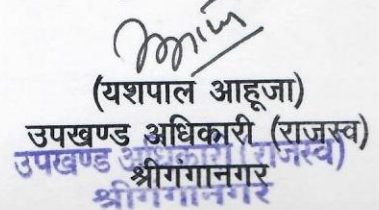 (यशपाल आहूजा)
उपखण्ड अधिकारी (राजस्व)
उपखण्ड अधिकारी (राजस्व)
श्रीगंगानगर
श्रीगंगानगर